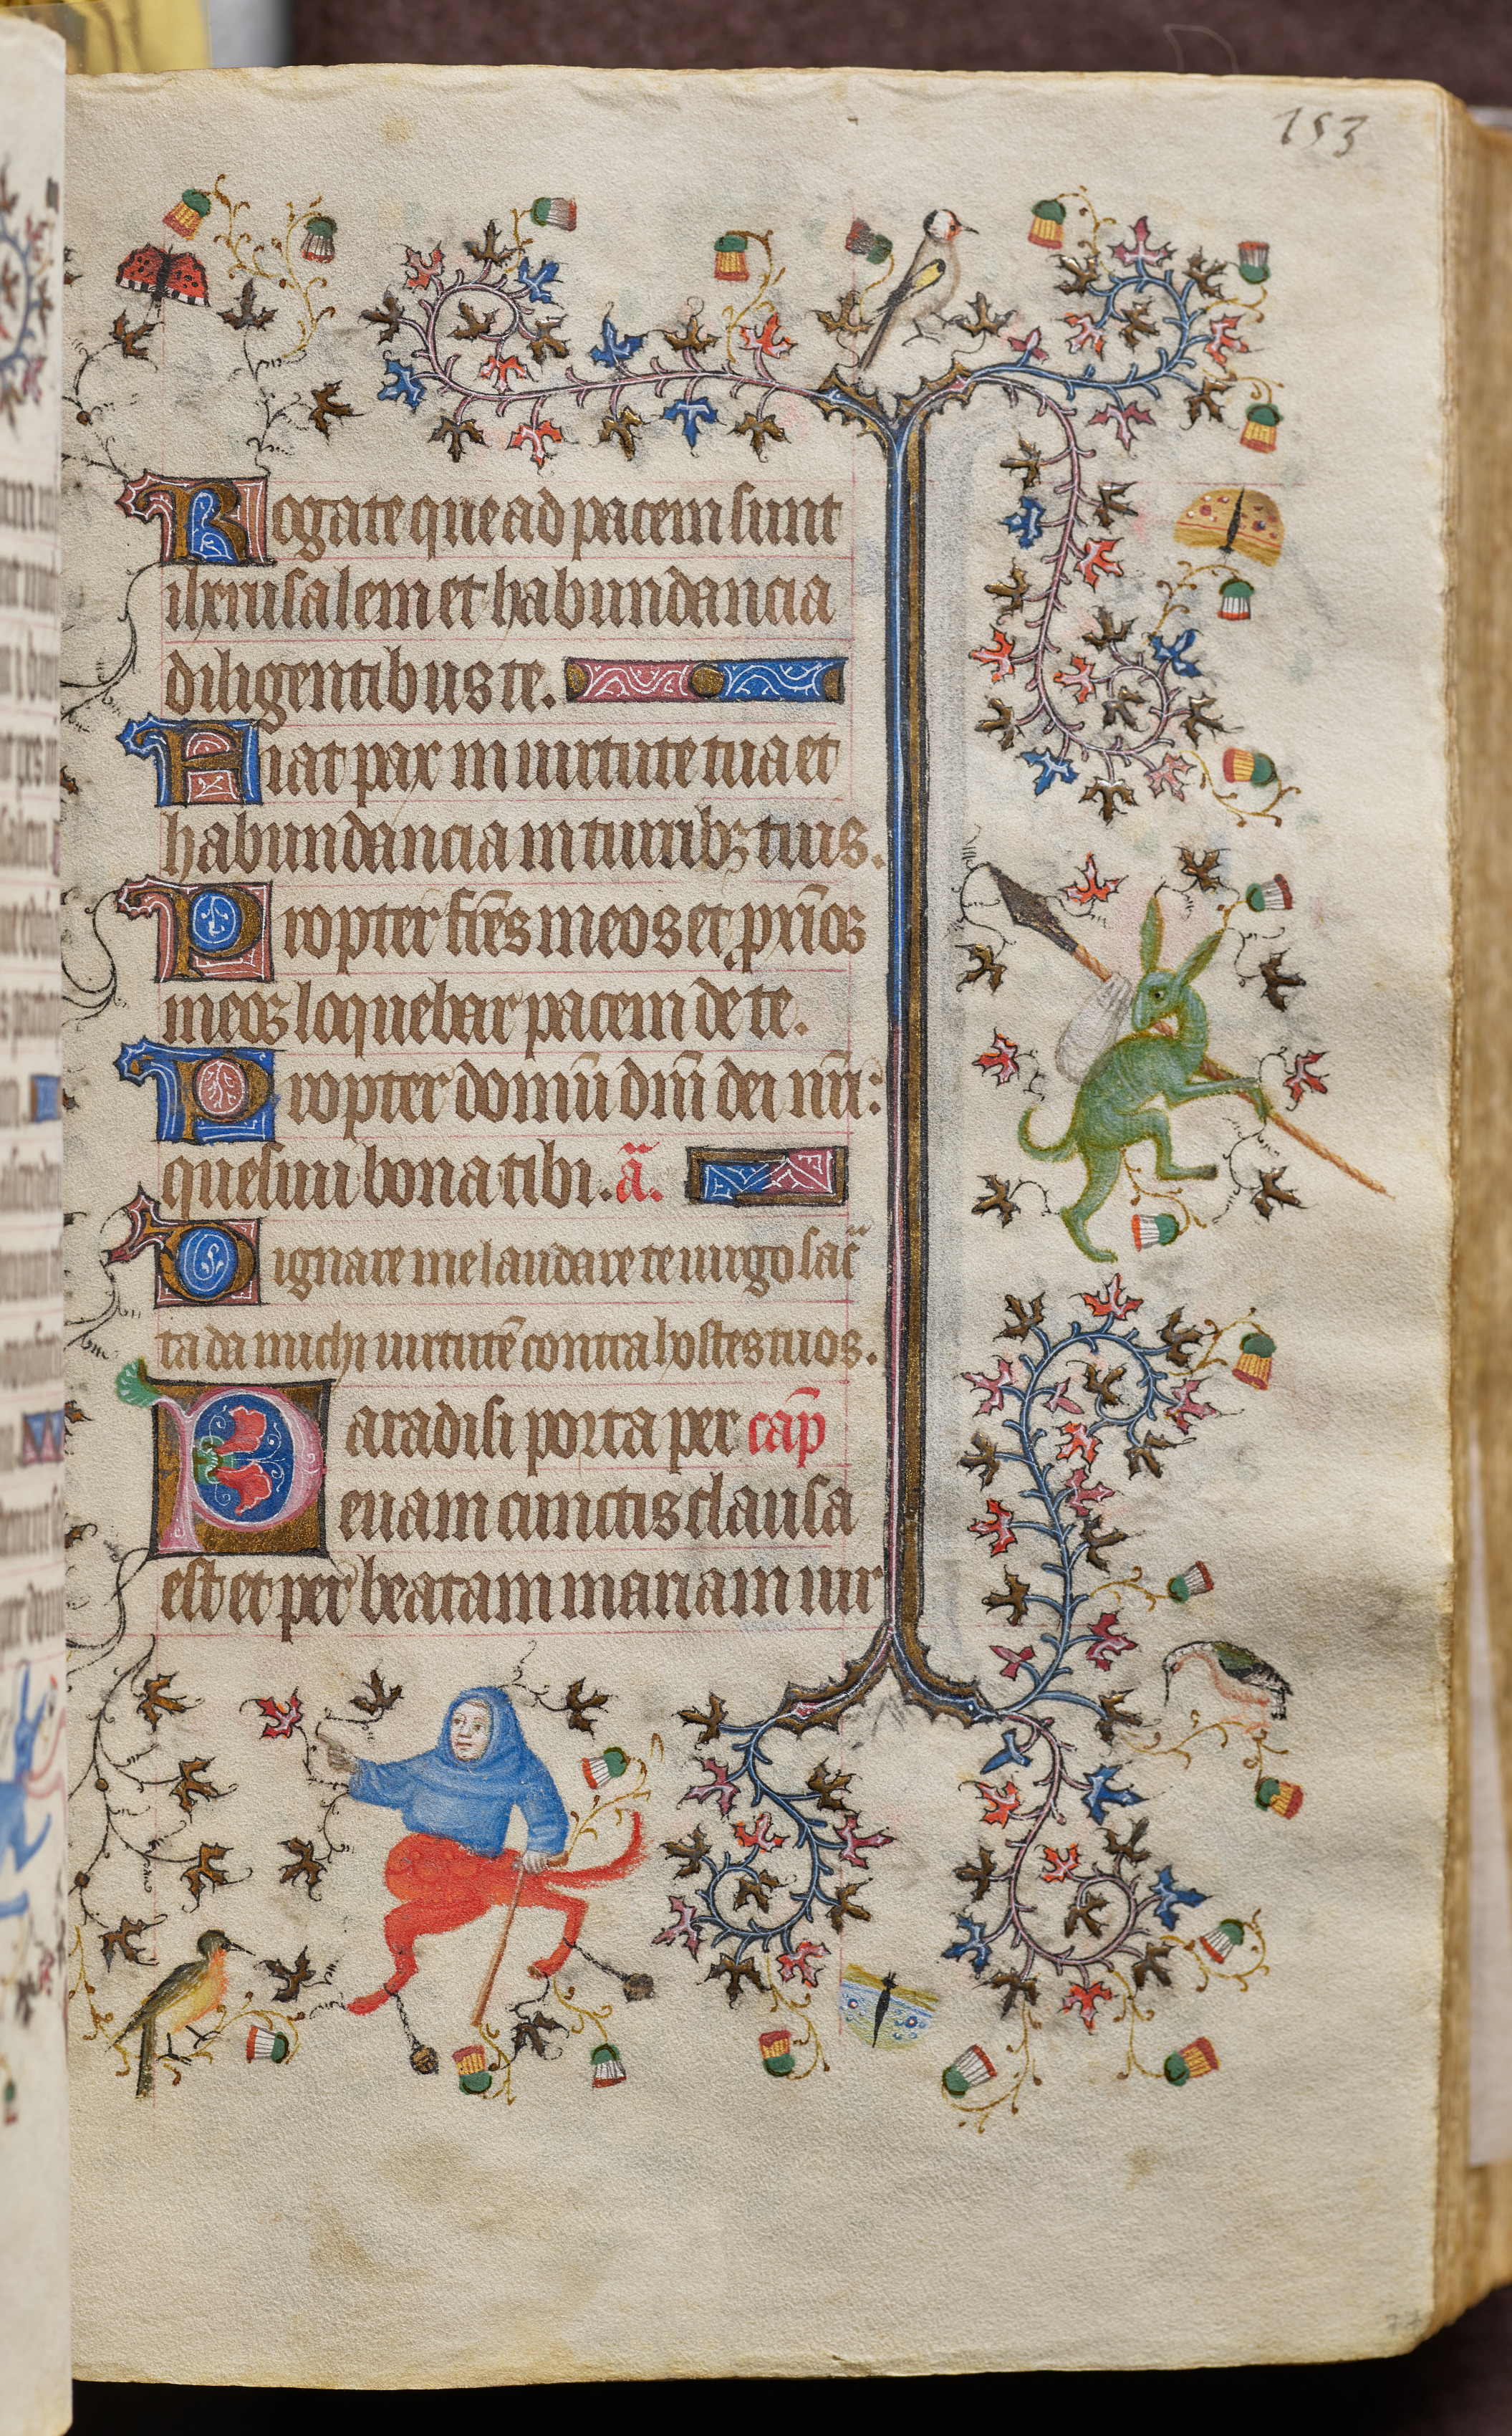 153
Rogate que ad pacem sunt
iherusalem et habundancia
diligentibus te.
Fiat pax in uirtute tua et
habundancia in turribꝫ tuis.
Propter frēs meos et ꝓxīos
meos loquebar pacem de te.
Propter domū dn̄i dei nr̄i:
quesiui bona tibi. ā.
Dignare me laudare te uirgo sac̄
ta da michi uirtutē contra hostes tuos.
Paradisi porta per cap̄
euam cunctis clausa
est et per beatam mariam uir